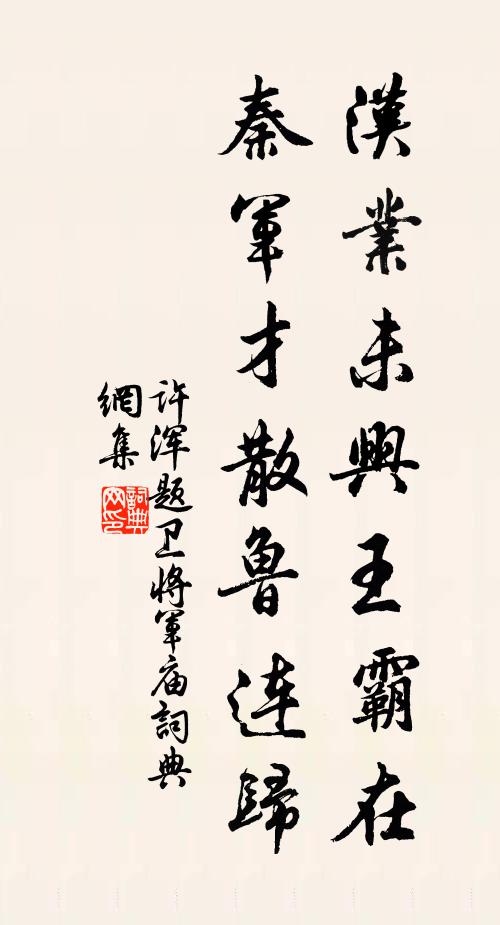 漢業未興王霸在
秦軍才散魯連歸
许渾题卫將軍庙詞典
網集
詞典网印